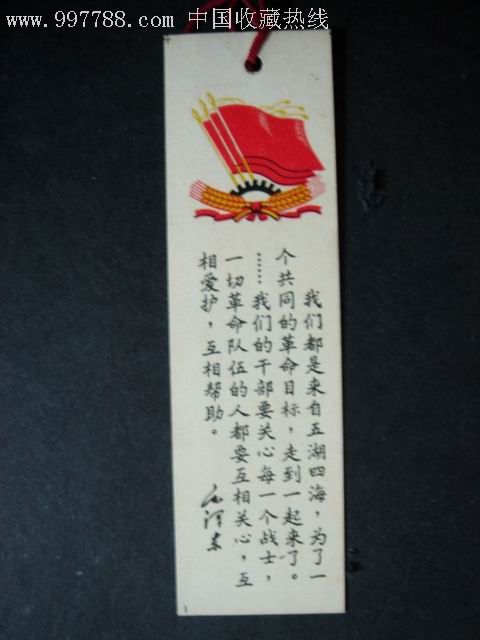 www.997788.com 中国收藏热线
我们都是来自五湖四海，为了一
个共同的革命目标，走到一起来了。
……我们的干部要关心每一个战士，
一切革命队伍的人都要互相关心，互
相爱护，互相帮助。
毛泽东
1